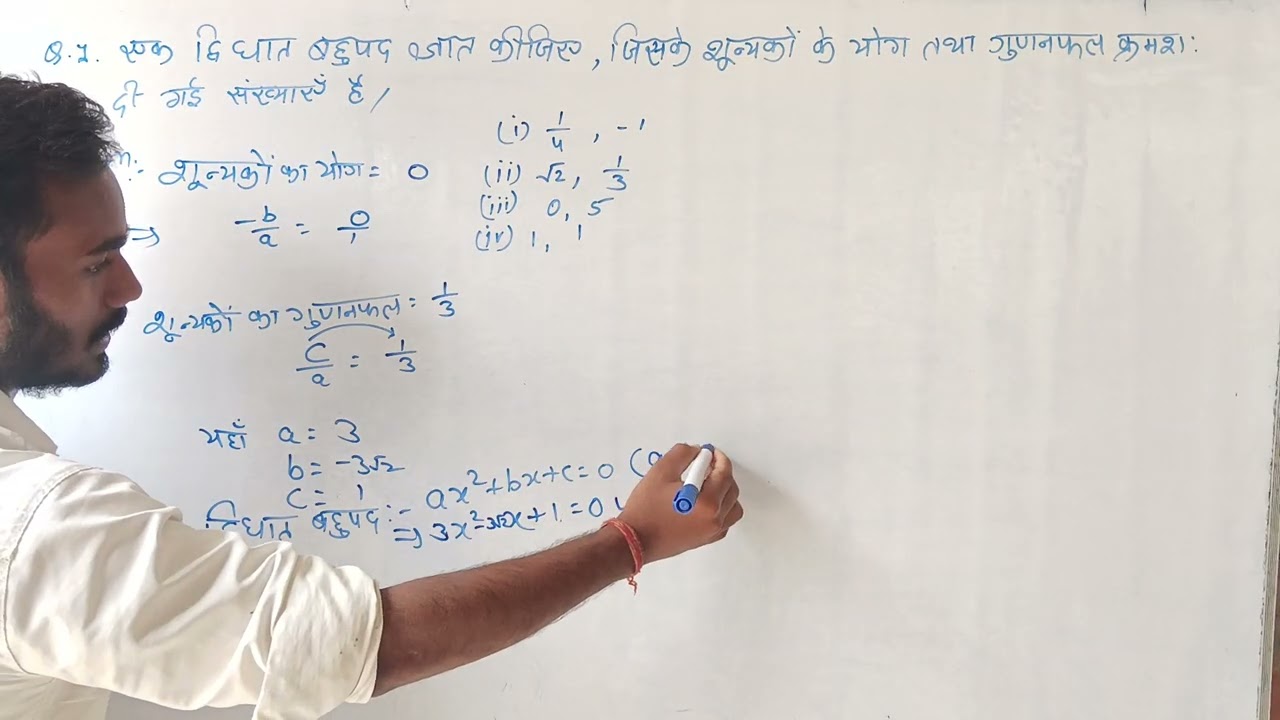 Q.1. एक द्विघात बहुपद ज्ञात कीजिए, जिसके शून्यकों के योग तथा गुणनफल क्रमशः
दी गई संख्याएँ हैं /
(i) 1/4 , -1
शून्यकों का योग = 0
(ii) √2, 1/3
(iii) 0, 5
⇒ -b/a = 0/1
(iv) 1, 1
शून्यकों का गुणनफल = 1/3
c/a = 1/3
यहाँ a = 3
b = -3√2
c = 1
द्विघात बहुपद :- ax²+bx+c=0 (a
⇒ 3x²-3√2x+1=0